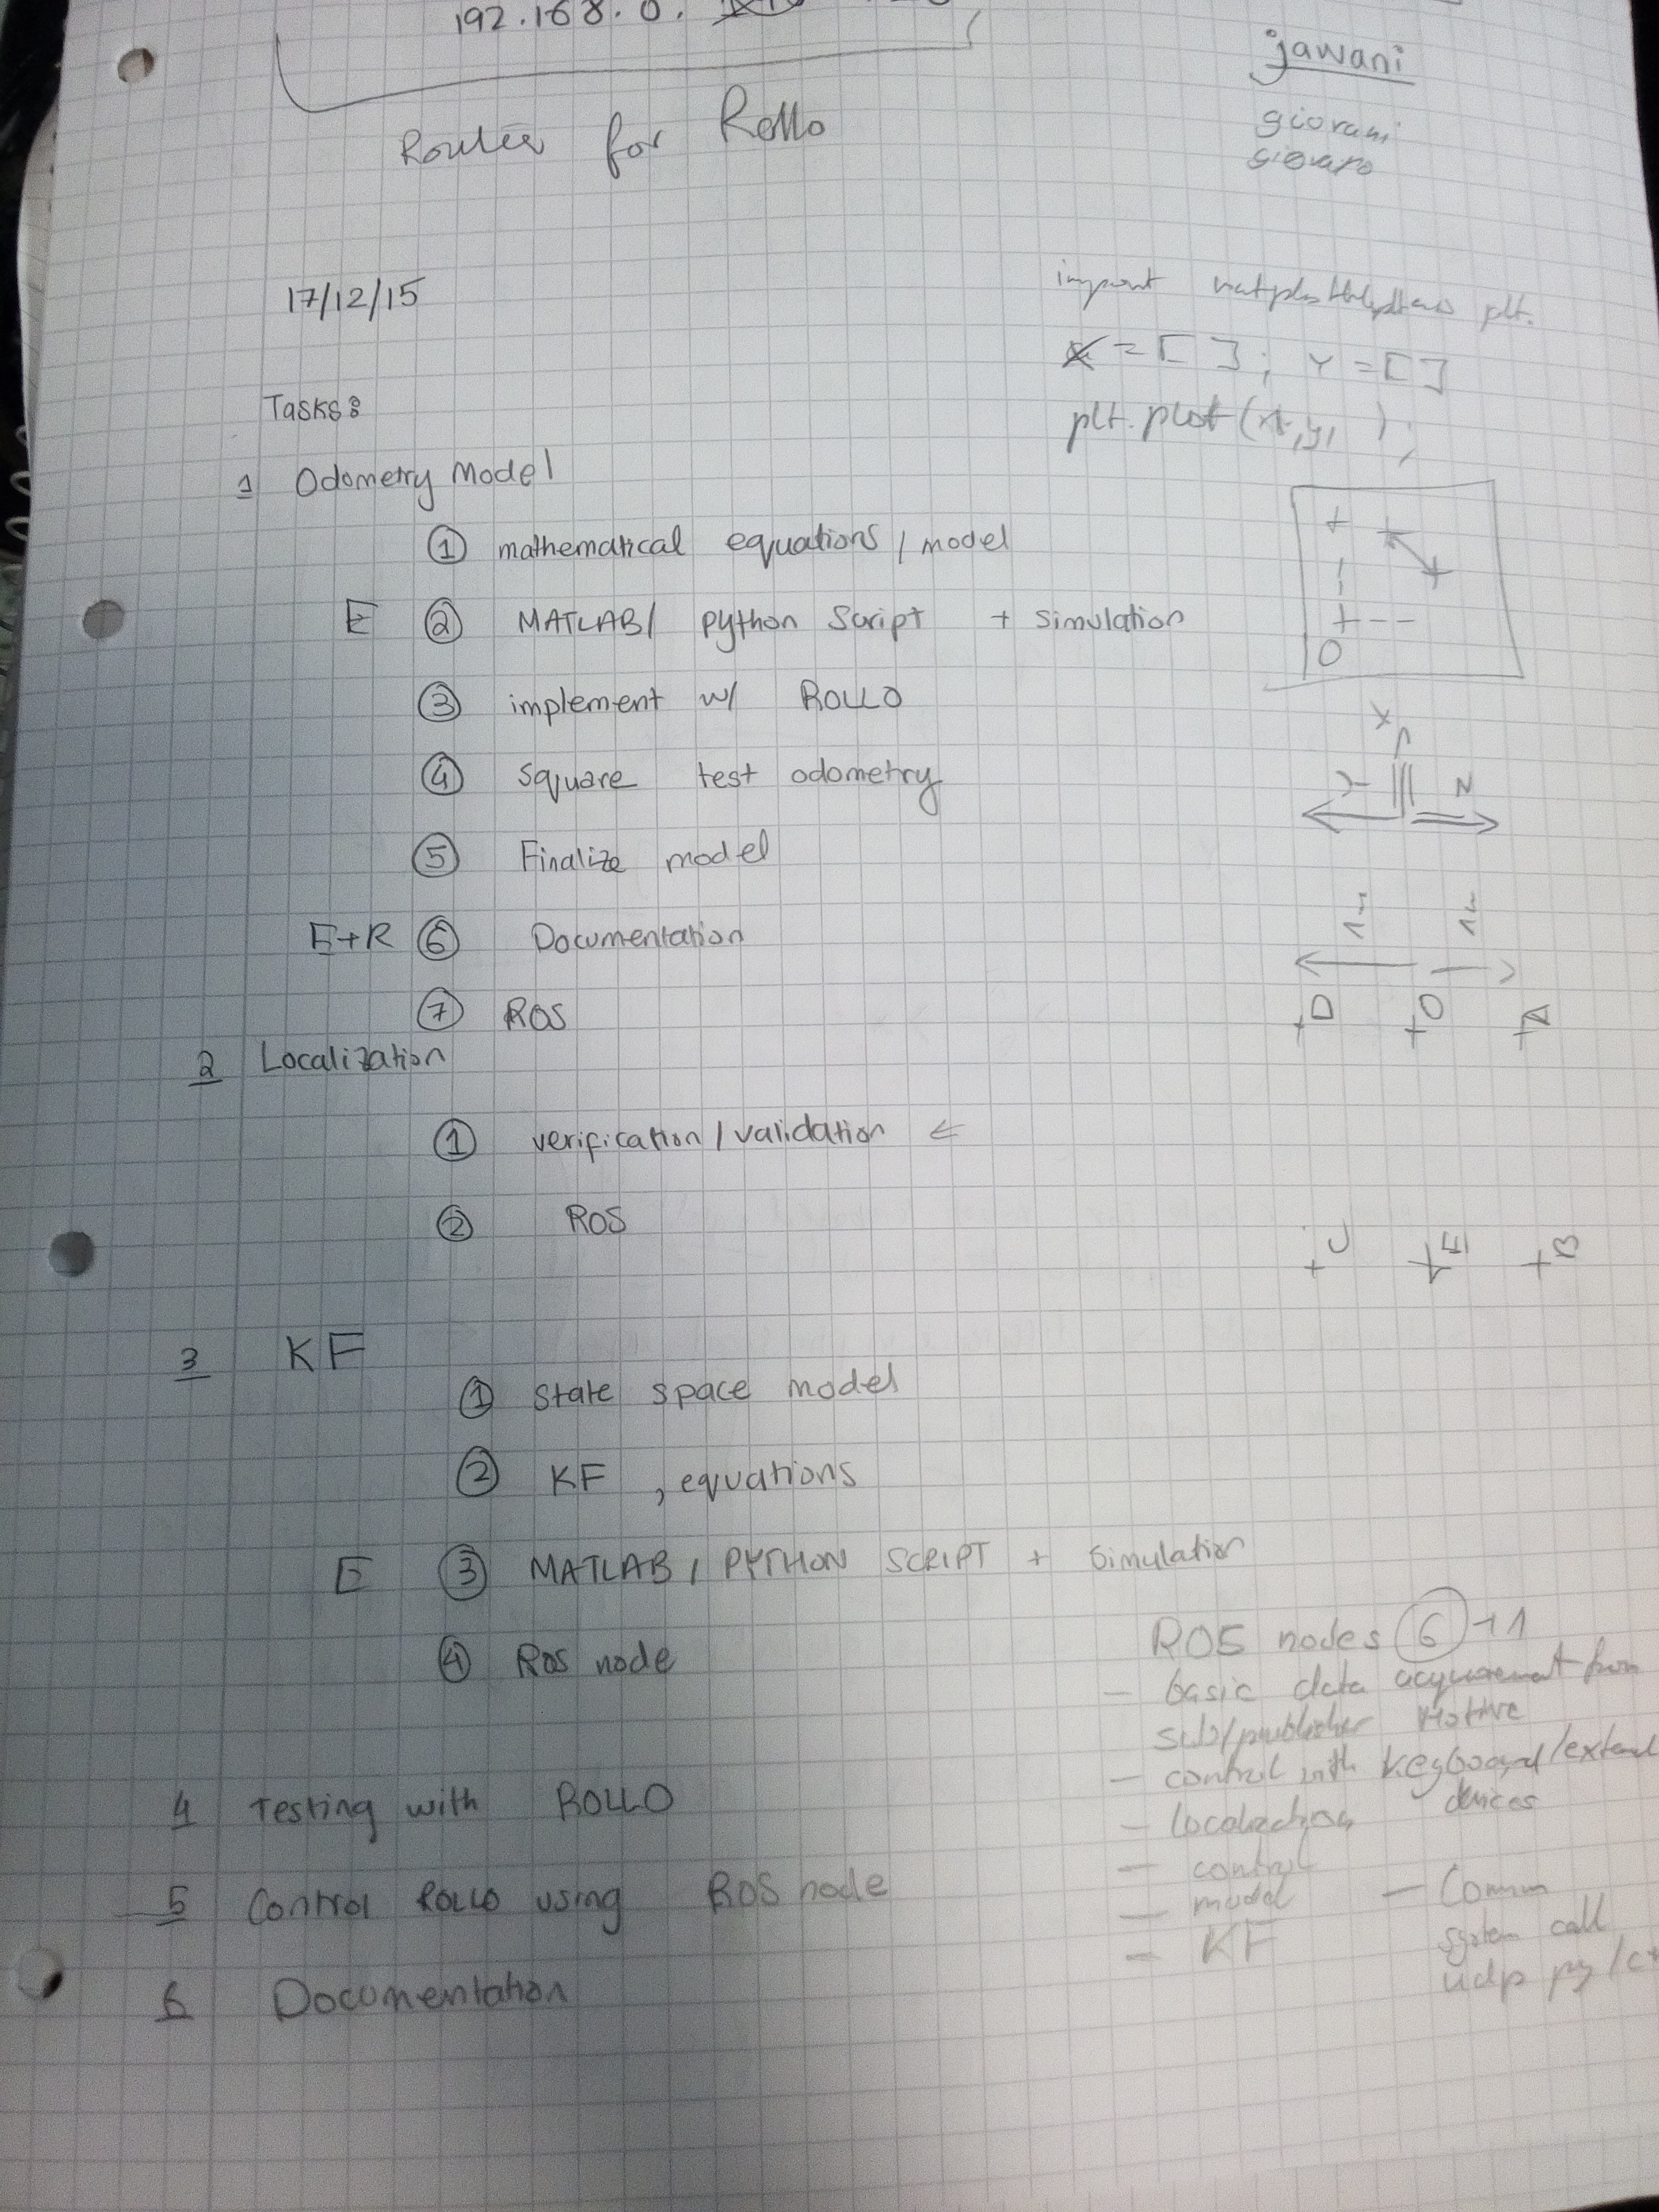 192.168.0.
Router for Rollo
jawani
giovani
giovaro
17/12/15
import plt.
x = [ ]; Y = [ ]
plt.plot(x,y, );
Tasks:
1 Odometry Model
① mathematical equations / model
E ② MATLAB/ python Script + simulation
③ implement w/ ROLLO
④ square test odometry
⑤ Finalize model
E+R ⑥ Documentation
⑦ ROS
+
+--
O
X
Y Z
1m 1m
+D +O +A
2 Localization
① verification / validation ⇐
② ROS
+C +E +B
3 KF
① state space model
② KF , equations
E ③ MATLAB / PYTHON SCRIPT + Simulation
④ Ros node
4 Testing with ROLLO
5 Control ROLLO using ROS node
6 Documentation
ROS nodes ⑥ +1
- basic data from
sub/publisher Motive
- control with keyboard/
devices
- localization
- control
- model
- KF
- Comm
system call
udp py /c+